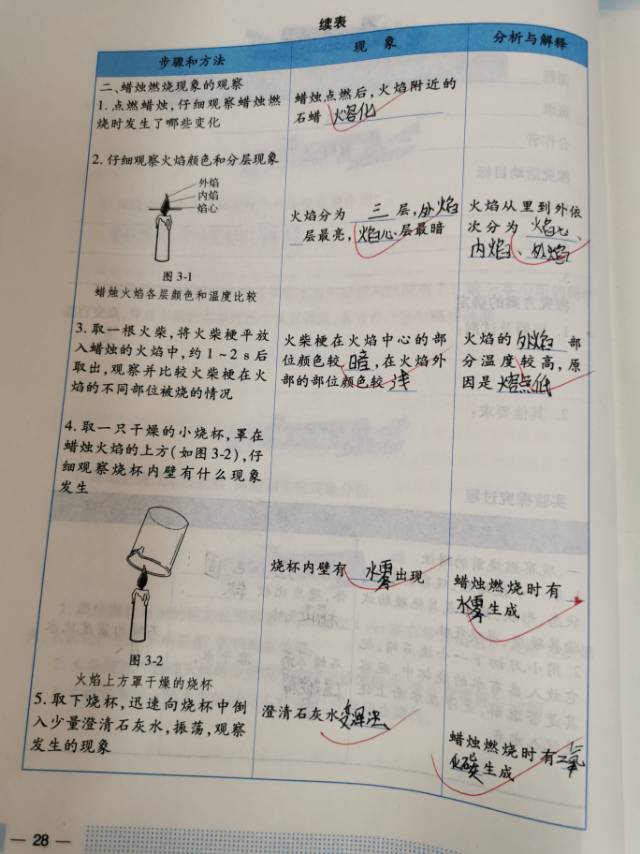 续表
步骤和方法
现象
分析与解释
二、蜡烛燃烧现象的观察
1.点燃蜡烛,仔细观察蜡烛燃
烧时发生了哪些变化
蜡烛点燃后,火焰附近的
石蜡 熔化
2.仔细观察火焰颜色和分层现象
外焰
内焰
焰心
图 3-1
蜡烛火焰各层颜色和温度比较
火焰分为 三 层,外焰
层最亮,焰心 层最暗
火焰从里到外依
次分为 焰心、
内焰、外焰
3.取一根火柴,将火柴梗平放
入蜡烛的火焰中,约1~2 s后
取出,观察并比较火柴梗在火
焰的不同部位被烧的情况
火柴梗在火焰中心的部
位颜色较 暗,在火焰外
部的部位颜色较 浅
火焰的 外焰 部
分温度较高,原
因是 熔点低
4.取一只干燥的小烧杯,罩在
蜡烛火焰的上方(如图3-2),仔
细观察烧杯内壁有什么现象
发生
图 3-2
火焰上方罩干燥的烧杯
烧杯内壁有 水雾 出现
蜡烛燃烧时有
水雾 生成
5.取下烧杯,迅速向烧杯中倒
入少量澄清石灰水,振荡,观察
发生的现象
澄清石灰水变浑浊
蜡烛燃烧时有二氧
化碳 生成
— 28 —